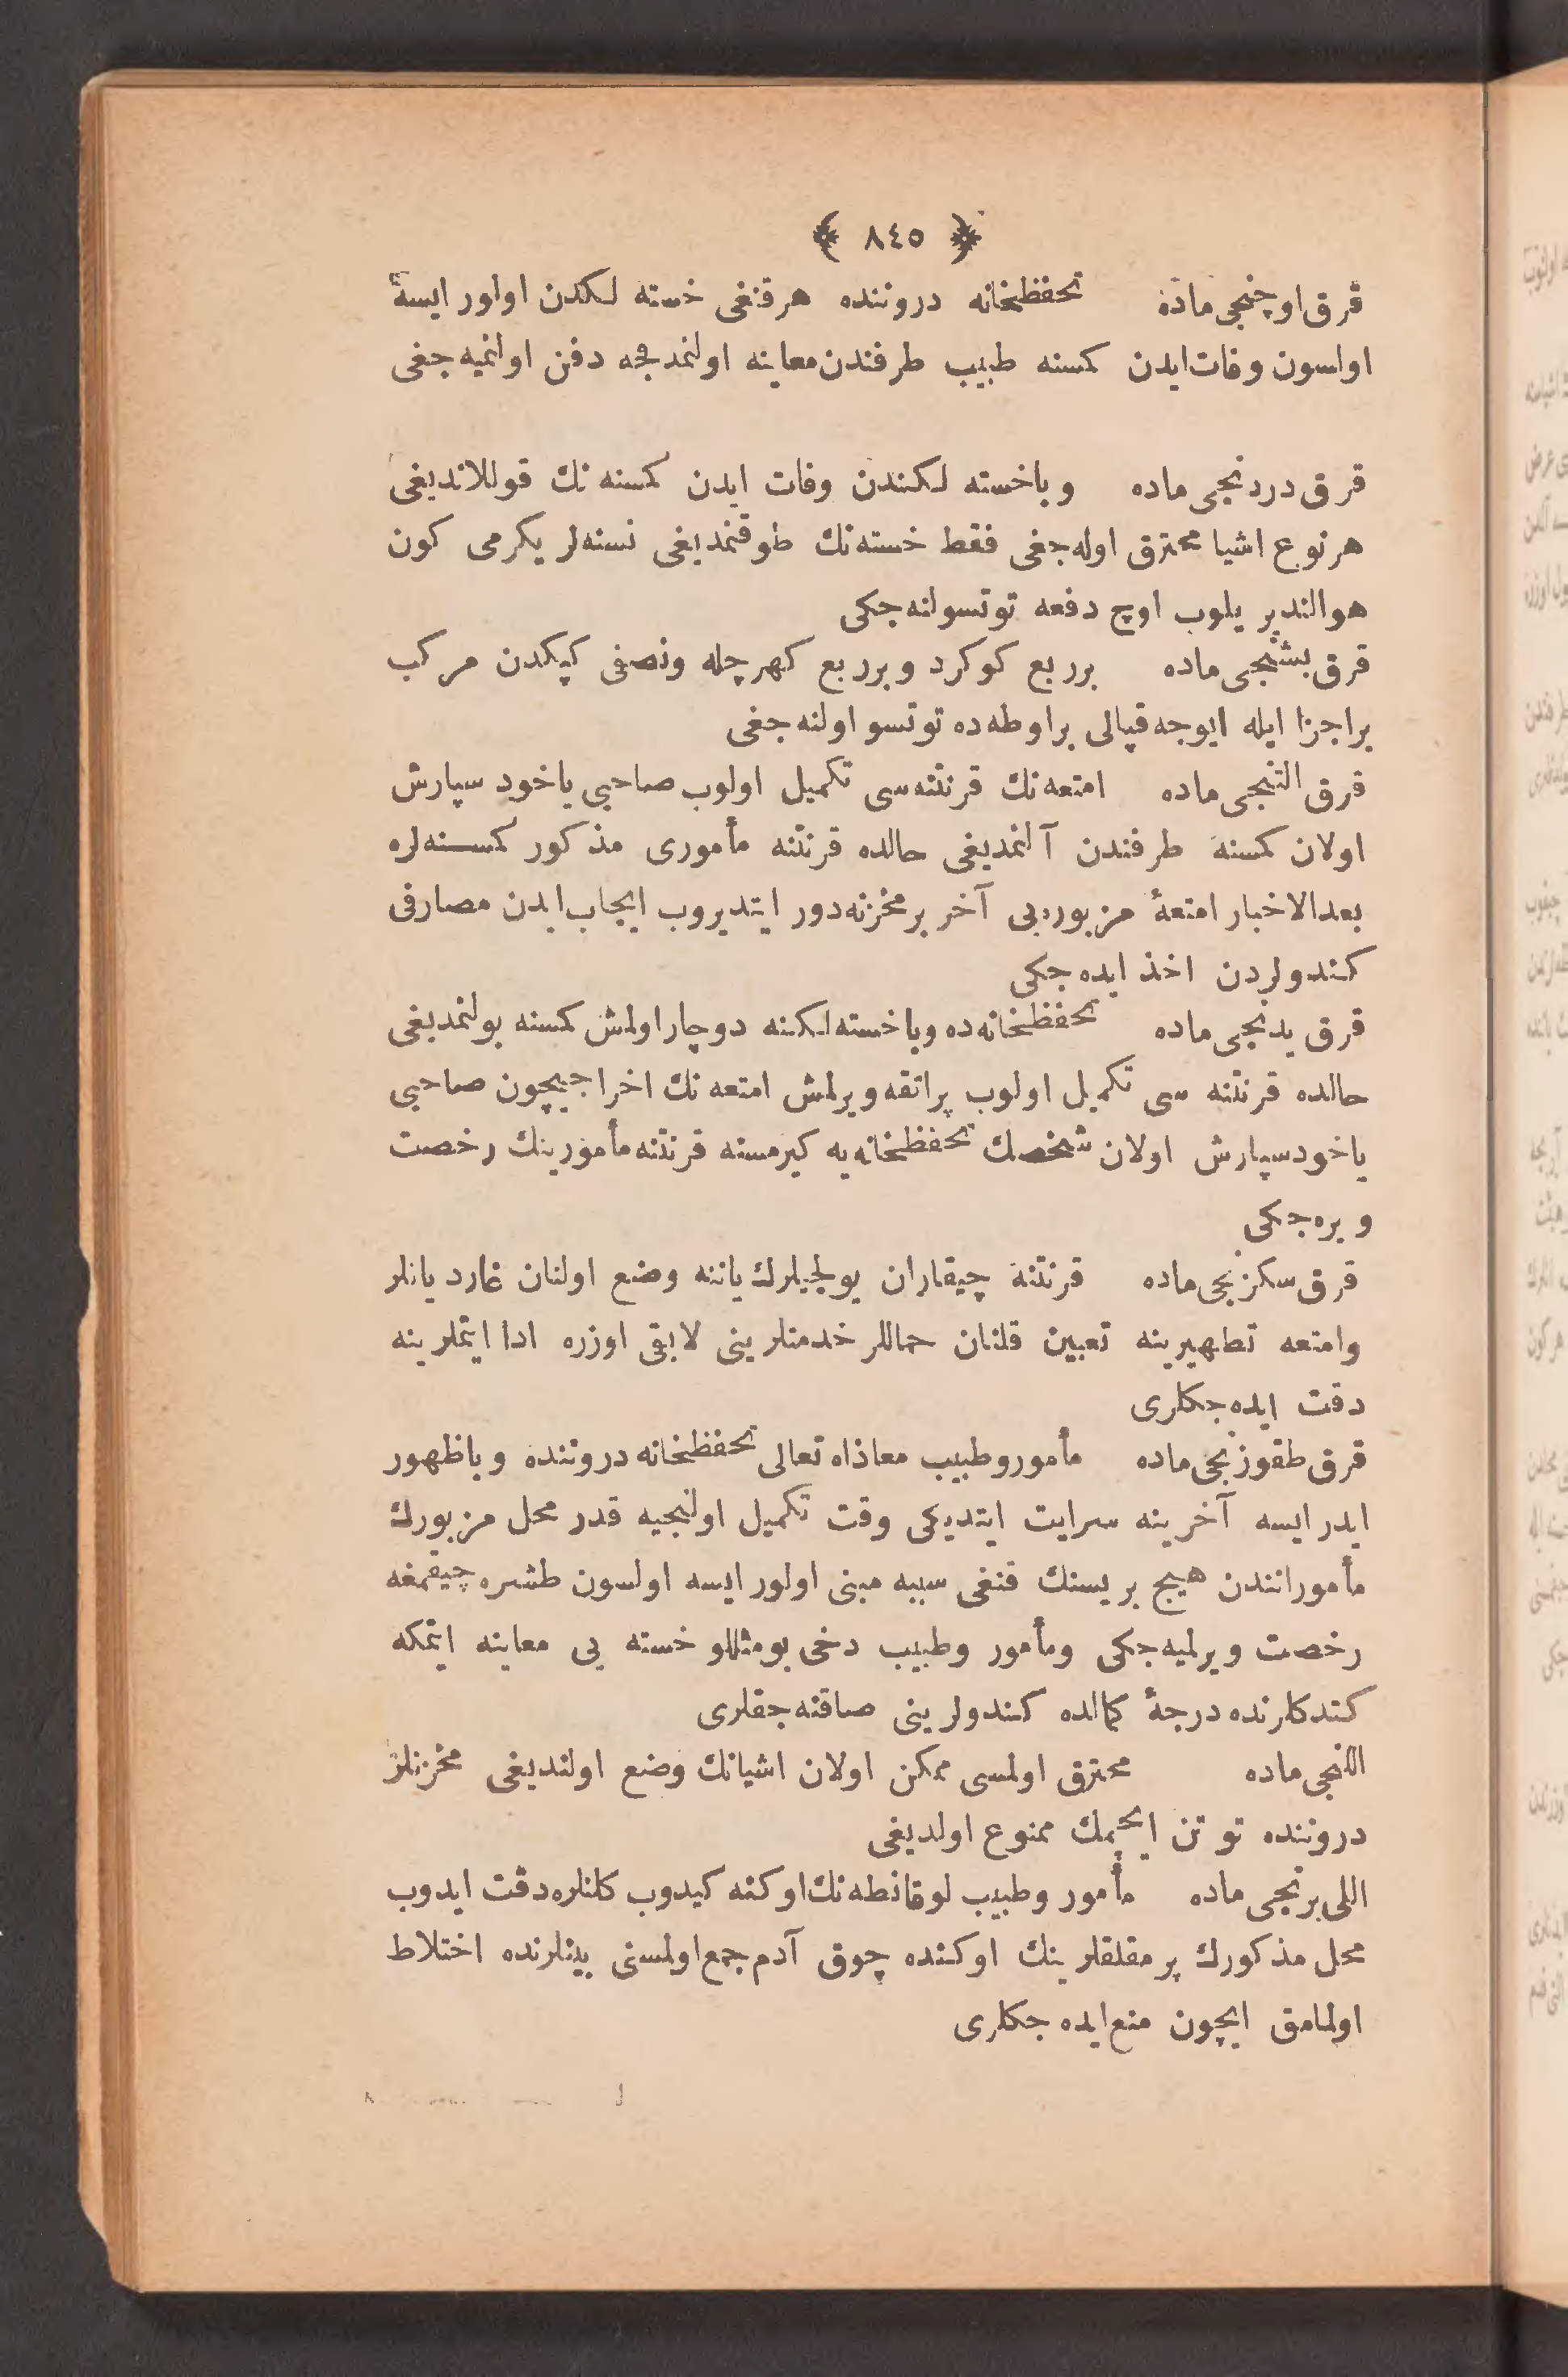 ﴿ ٨٤٥ ﴾
قرق اوچنجی ماده تحفظخانه دروننده هر قنغی خسته لكدن اولور ایسه
اولسون وفات ایدن كمسنه طبیب طرفندن معاینه اولنمدقجه دفن اولنمیه جغی
قرق دردنجی ماده وبا خسته لكندن وفات ایدن كمسنه نك قوللاندیغی
هر نوع اشیا محترق اوله جغی فقط خسته نك طوقنمدیغی نسنه لر یكرمی كون
هوالندیریلوب اوچ دفعه توتسولنه جكی
قرق بشنجی ماده بر ربع كوكرد و بر ربع كهرچله ونصفی كپكدن مركب
بر اجزا ایله ایوجه قپالی بر اوطه ده توتسو اولنه جغی
قرق التنجی ماده امتعه نك قرنتنه سی تكمیل اولوب صاحبی یاخود سپارش
اولان كمسنه طرفندن آلنمدیغی حالده قرنتنه مأموری مذكور كمسنه لره
بعدالاخبار امتعهٔ مزبوره یی آخر بر مخزنه دور ایتدیروب ایجاب ایدن مصارفی
كندولردن اخذ ایده جكی
قرق یدنجی ماده تحفظخانه ده وبا خسته لكنه دوچار اولمش كمسنه بولنمدیغی
حالده قرنتنه سی تكمیل اولوب پراتقه ویرلمش امتعه نك اخراجیچون صاحبی
یاخود سپارش اولان شخصك تحفظخانه یه كیرمسنه قرنتنه مأمورینك رخصت
ویره جكی
قرق سكزنجی ماده قرنتنه چیقاران یولجیلرك یاننه وضع اولنان غاردیانلر
وامتعه تطهیرینه تعیین قلنان حماللر خدمتلرینی لایقی اوزره ادا ایتملرینه
دقت ایده جكلری
قرق طقوزنجی ماده مأمور وطبیب معاذاه تعالی تحفظخانه دروننده وبا ظهور
ایدر ایسه آخرینه سرایت ایتدیكی وقت تكمیل اولنجیه قدر محل مزبورك
مأمورانندن هیچ بریسنك قنغی سببه مبنی اولور ایسه اولسون طشره چیقمغه
رخصت ویرلمیه جكی ومأمور وطبیب دخی بومثللو خسته یی معاینه ایتمكه
كتدكلرنده درجهٔ كمالده كندولرینی صاقنه جقلری
اللنجی ماده محترق اولمسی ممكن اولان اشیانك وضع اولندیغی مخزنلر
دروننده توتن ایچمك ممنوع اولدیغی
اللی برنجی ماده مأمور وطبیب لوقانطه نك اوكنه كیدوب كلنلره دقت ایدوب
محل مذكورك پرمقلقلرینك اوكنده چوق آدم جمع اولمسنی بینلرنده اختلاط
اولمامق ایچون منع ایده جكلری